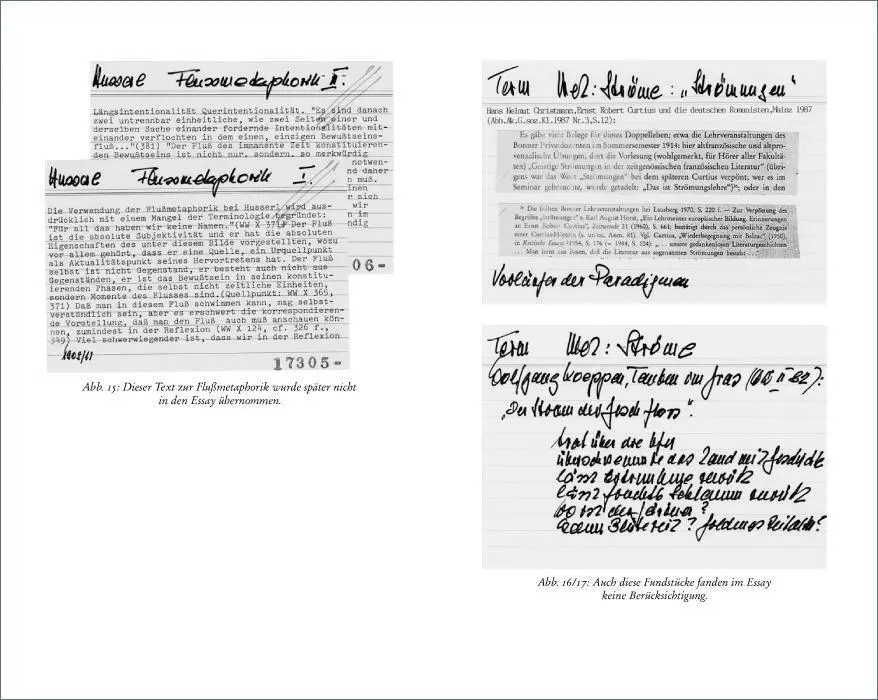 Husserl Flussmetaphorik II.
Längsintentionalität Querintentionalität. "Es sind danach
zwei untrennbar einheitliche, wie zwei Seiten einer und
derselben Sache einander fordernde Intentionalitäten mit-
einander verflochten in dem einen, einzigen Bewußtseins-
fluß..."(381) "Der Fluß des immanente Zeit konstituieren-
den Bewußtseins ist nicht nur, sondern, so merkwürdig
notwen-
nd daher
n muß.
inen
r sich
wir
n im
ndig
06-
Husserl Flussmetaphorik I.
Die Verwendung der Flußmetaphorik bei Husserl wird aus-
drücklich mit einem Mangel der Terminologie begründet:
"Für all das haben wir keine Namen."(WW X 371) Der Fluß
ist die absolute Subjektivität und er hat die absoluten
Eigenschaften des unter diesem Bilde vorgestellten, wozu
vor allem gehört, dass er eine Quelle, ein Urquellpunkt
als Aktualitätspunkt seines Hervortretens hat. Der Fluß
selbst ist nicht Gegenstand, er besteht auch nicht aus
Gegenständen, er ist das Bewußtsein in seinen konstitu-
ierenden Phasen, die selbst nicht zeitliche Einheiten,
sondern Momente des Flusses sind.(Quellpunkt: WW X 365,
371) Daß man in diesem Fluß schwimmen kann, mag selbst-
verständlich sein, aber es erschwert die korrespondieren-
de Vorstellung, daß man den Fluß auch muß anschauen kön-
nen, zumindest in der Reflexion (WW X 124, cf. 326 f.,
349) Viel schwerwiegender ist, dass wir in der Reflexion
17305-
Abb. 15: Dieser Text zur Flußmetaphorik wurde später nicht
in den Essay übernommen.
Term Met: Ströme: „Strömungen"
Hans Helmut Christmann, Ernst Robert Curtius und die deutschen Romanisten, Mainz 1987
(Abh.Ak.G.soz.Kl.1987 Nr.3,S.12):
Es gäbe viele Belege für dieses Doppelleben; etwa die Lehrveranstaltungen des
Bonner Privatdozenten im Sommersemester 1914: hier altfranzösische und altpro-
venzalische Übungen, dort die Vorlesung (wohlgemerkt, für Hörer aller Fakultä-
ten) „Geistige Strömungen in der zeitgenössischen französischen Literatur" (übri-
gens war das Wort „Strömungen" bei dem späteren Curtius verpönt; wer es im
Seminar gebrauchte, wurde getadelt: „Das ist Strömungslehre"); oder in den
Die frühen Bonner Lehrveranstaltungen bei Lausberg 1970, S. 220 f. – Zur Verpönung des
Begriffes „Strömungen" s. Karl August Horst, „Ein Lehrmeister europäischer Bildung. Erinnerungen
an Ernst Robert Curtius", Zeitwende 31 (1960), S. 661; bestätigt durch das persönliche Zeugnis
einer Curtius-Hörerin (s. unten, Anm. 81). Vgl. Curtius, „Wiederbegegnung mit Balzac", (1950),
in Kritische Essays 1954, S. 176 (= 1984, S. 104): „... unsere gedankenlosen Literaturgeschichten
... Man lernt aus ihnen, daß die Literatur aus sogenannten Strömungen besteht ..."
Vorläufer der Paradigmen
Term Met: Ströme
Wolfgang Koeppen, Tauben im Gras II 82):
„Der Strom der Geschichte
trat über die Ufer
überschwemmte das Land mit Geschichte
lässt Ertrunkene zurück
lässt Schlamm zurück
Abb. 16/17: Auch diese Fundstücke fanden im Essay
keine Berücksichtigung.